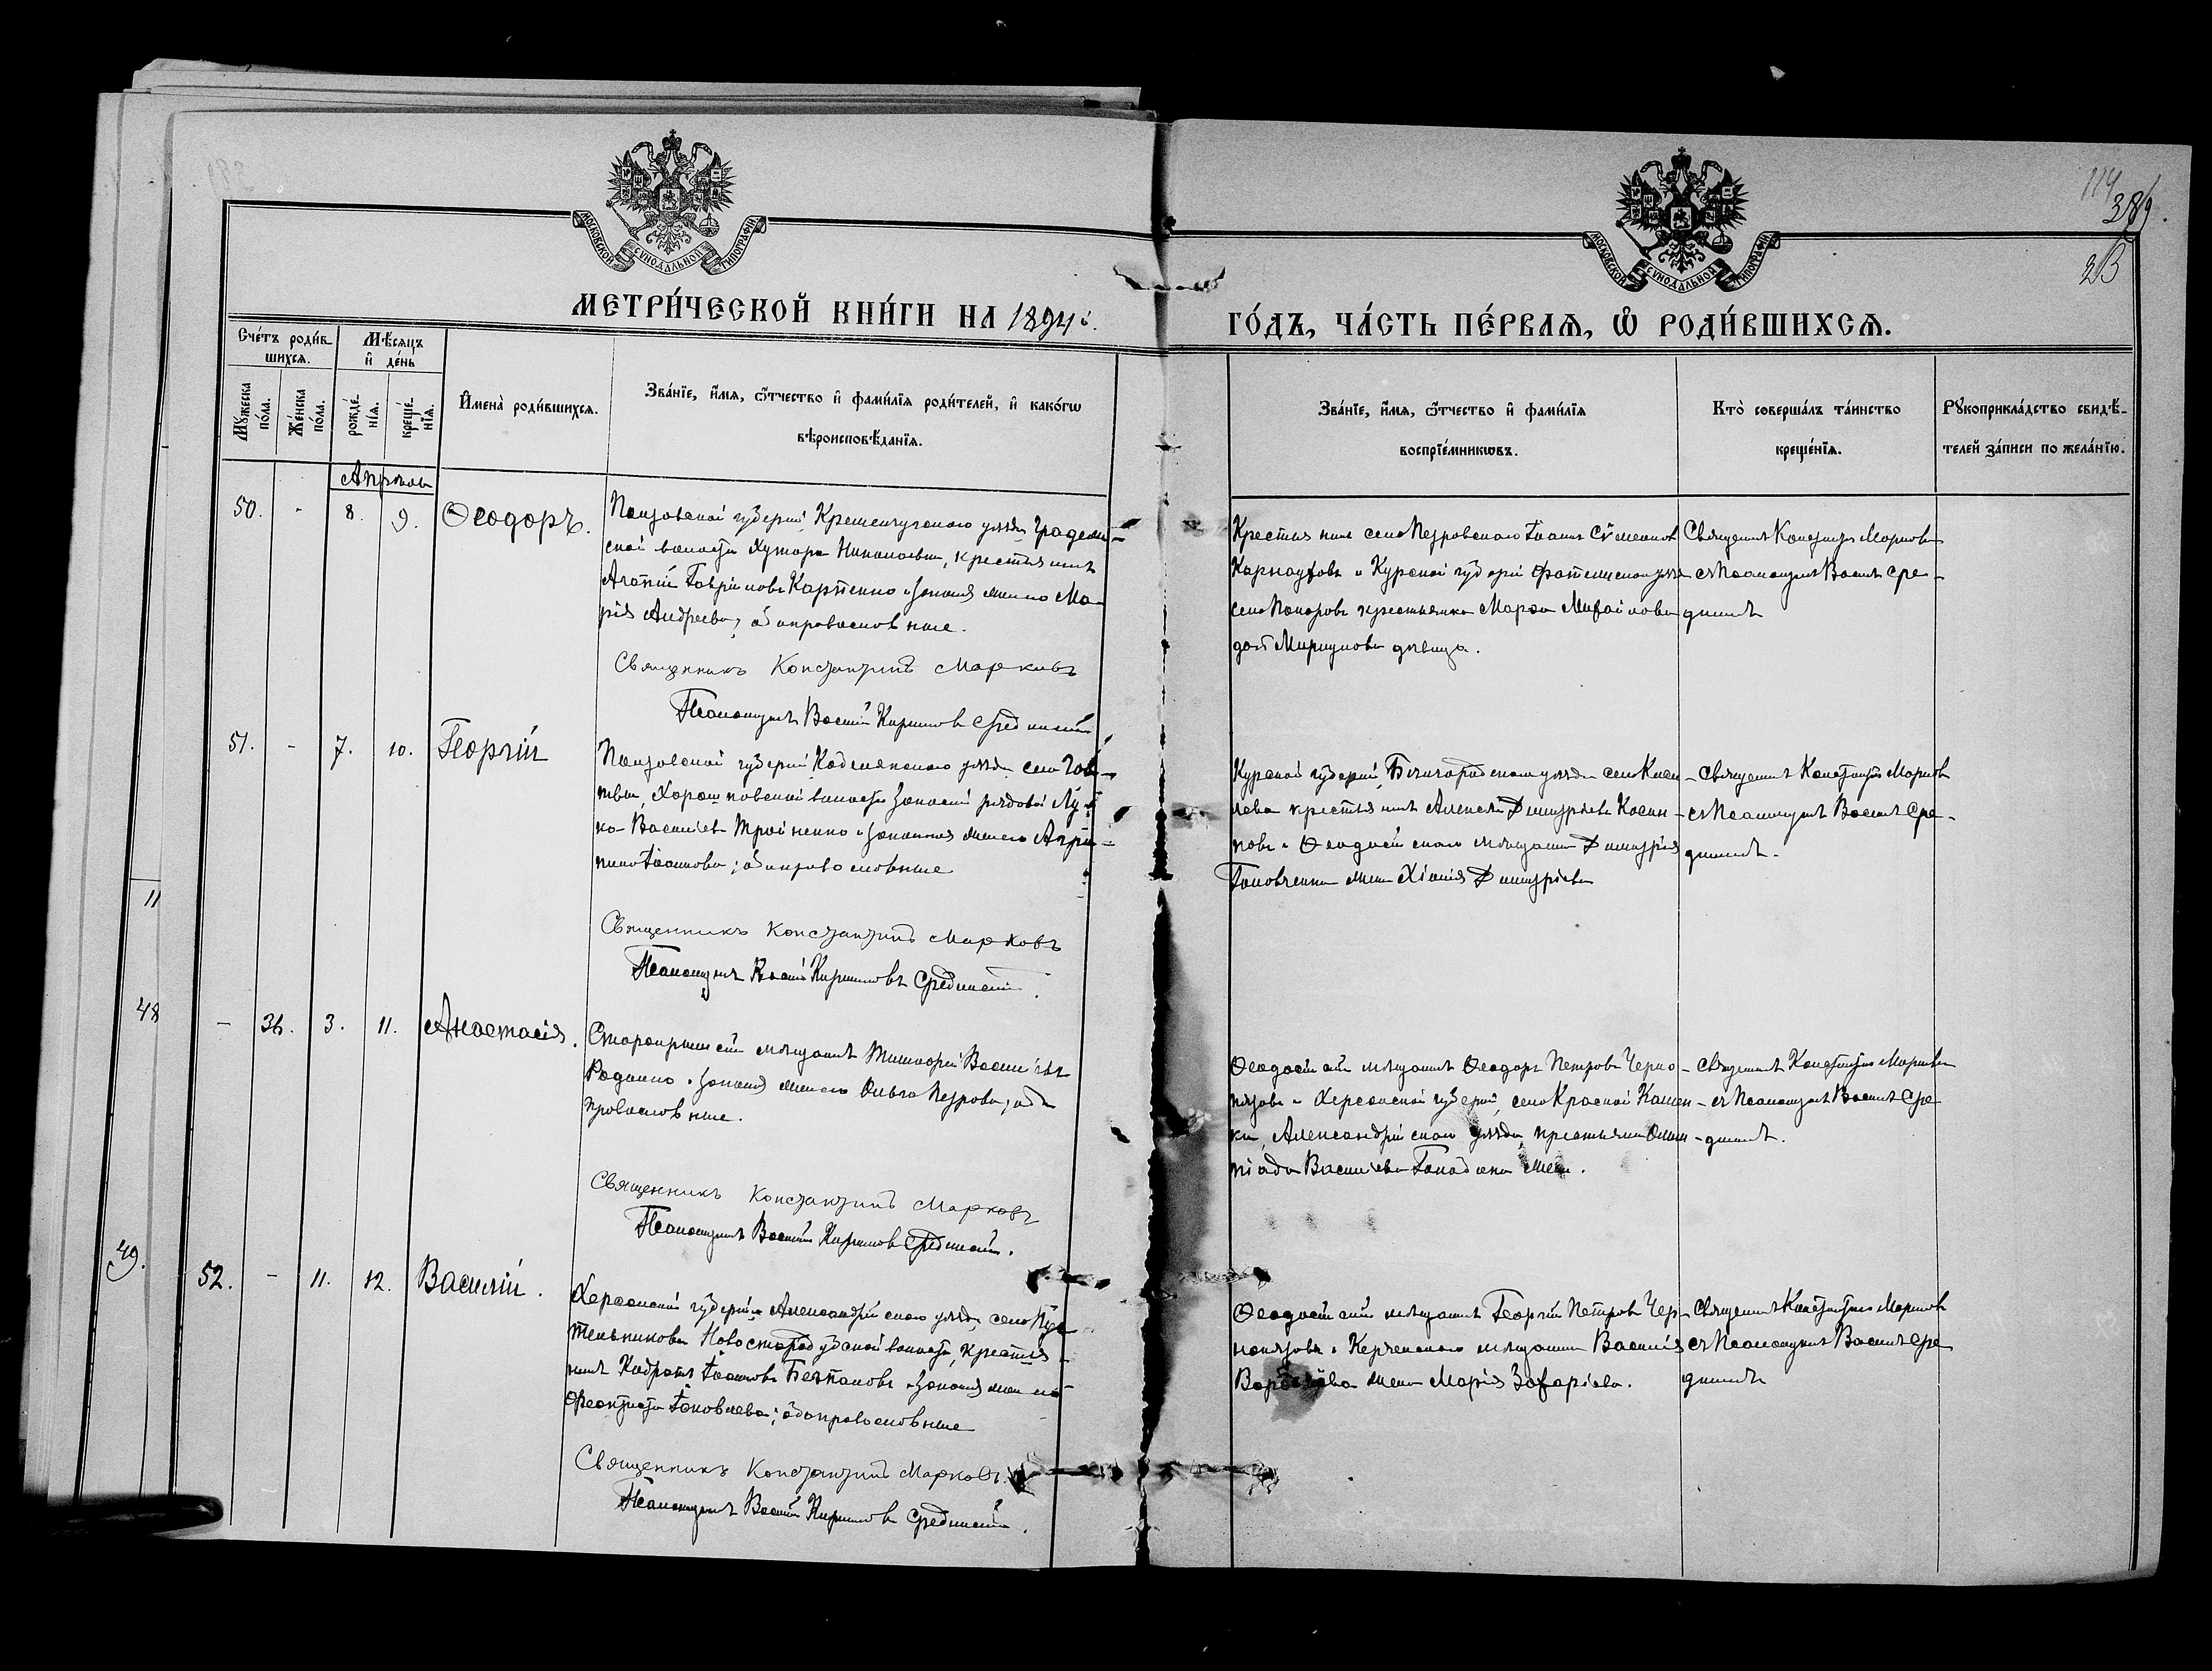 МОСКОВСКОЙ СУНОДАЛЬНОЙ ТИПОГРАФІИ
МОСКОВСКОЙ СУНОДАЛЬНОЙ ТИПОГРАФІИ
114
389.
МЕТРИ́ЧЕСКОЙ КНИ́ГИ НА 1894 г.
ГО́ДЪ, ЧА́СТЬ ПЕ́РВАЯ, Ѡ РОДИ́ВШИХСЯ.
Сче́тъ роди́в-
шихся.
Мѣ́сяцъ
и де́нь
Мꙋ́жеска
по́ла.
Же́нска
по́ла.
рожде́-
нїя.
креще́-
нїя.
И҆мена̀ роди́вшихся.
Зва́нїе, и҆́мя, ѻ҆́тчество и҆ фами́лїя роди́телей, и҆ како́гѡ
вѣроисповѣ́данїя.
Зва́нїе, и҆́мя, ѻ҆́тчество и҆ фами́лїя
воспрїе́мникѡвъ.
Кто̀ соверша́лъ та́инство
креще́нїя.
Рꙋкоприкла́дство свидѣ́-
телей за́писи по жела́нїю.
Апрѣль
50. - 8. 9. Ѳеодоръ.
Полтовской губерніи, Кременчугскаго уѣзда, Градиж-
ской волости хутора Николаевки, крестьянинъ
Агапій Гавріиловъ Карпенко и законная жена его Ма-
рія Андреева, оба православные.
Священникъ Константинъ Марковъ
Псаломщикъ Василій Кирилловъ Срединскій
Крестьянинъ села Петровскаго Іоаннъ Сѵмеоновъ
Карнауховъ и Курской губерніи Фатежскаго уѣзда
села крестьянка Марѳа Михайлова
дѣвица.
Священникъ Константинъ Марковъ
съ Псаломщикомъ Василіемъ Сре-
динскимъ
51. - 7. 10. Георгій
Полтовской губерніи Кобелякскаго уѣзда, села
Хорошковской волости запасный рядовой Лу-
ка Василіевъ Тройненко и законная жена его Агрип-
пина Іоаннова; оба православные
Священникъ Константинъ Марковъ
Псаломщикъ Василій Кирилловъ Срединскій.
Курской губерніи, Бѣлгородскаго уѣзда села
крестьянинъ Алексѣй Димитріевъ
и Ѳеодосійскаго мѣщанина Димитрія
жена Димитріева
Священникъ Константинъ Марковъ
съ Псаломщикомъ Василіемъ Сре-
динскимъ.
11
48
- 36. 3. 11. Анастасія.
Старокрымскій мѣщанинъ Тимоѳей Василіевъ
Родненко и законная жена его Ольга Петрова; оба
православные.
Священникъ Константинъ Марковъ
Псаломщикъ Василій Кирилловъ Срединскій.
Ѳеодосійскій мѣщанинъ Ѳеодоръ Петровъ Черно-
и Херсонской губерніи, села Красной Камен-
ки, Александрійскаго уѣзда, крестьянина Олим-
піада Василіева жена.
Священникъ Константинъ Марковъ
съ Псаломщикомъ Василіемъ Сре-
динскимъ.
49.
52. - 11. 12. Василій.
Херсонской губерніи, Александрійскаго уѣзда, села
Новостародубской волости, крестья-
нинъ Кодратъ Іоанновъ и законная жена его
Ѳеоктиста Іаковлева; оба православные
Священникъ Константинъ Марковъ.
Псаломщикъ Василій Кирилловъ Срединскій.
Ѳеодосійскій мѣщанинъ Георгій Петровъ Чер-
и Керченскаго мѣщанина Василія
жена Марія Захаріева.
Священникъ Константинъ Марковъ
съ Псаломщикомъ Василіемъ Сре-
динскимъ